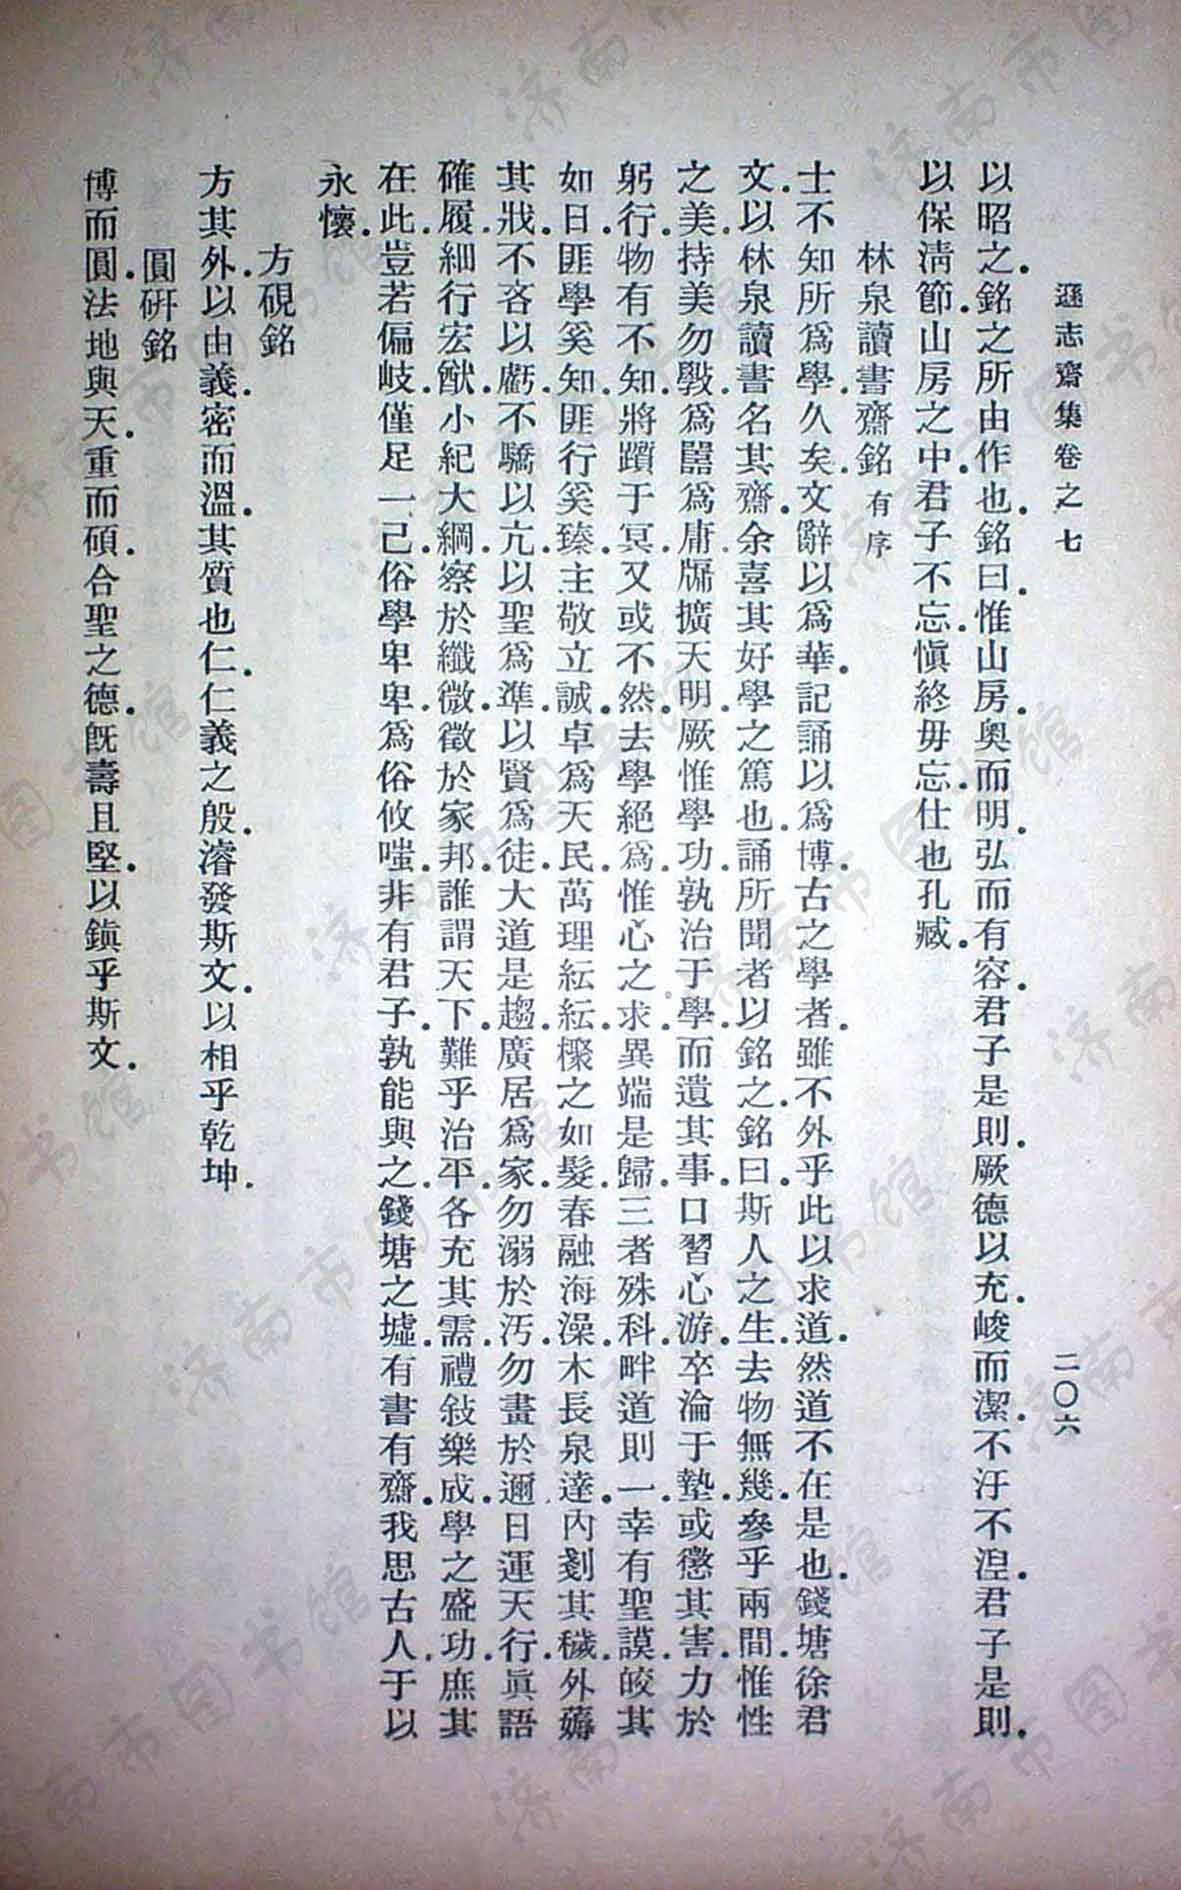 遜志齋集卷之七
二〇六
以昭之.銘之所由作也.銘曰.惟山房.奥而明.弘而有容.君子是則.厥德以充.峻而潔.不汙不湼.君子是則.
以保淸節.山房之中.君子不忘.愼終毋忘.仕也孔臧.
林泉讀書齋銘有序
士不知所爲學久矣.文辭以爲華.記誦以爲博.古之學者.雖不外乎此以求道.然道不在是也.錢塘徐君
文.以林泉讀書名其齋.余喜其好學之篤也.誦所聞者以銘之.銘曰.斯人之生.去物無幾.參乎兩間.惟性
之美.持美勿斁.爲嚚爲庸.牖擴天明.厥惟學功.孰治于學.而遺其事.口習心游.卒淪于墊.或懲其害.力於
躬行.物有不知.將躓于冥.又或不然.去學絕爲.惟心之求.異端是歸.三者殊科.畔道則一.幸有聖謨.皎其
如日.匪學奚知.匪行奚臻.主敬立誠.卓爲天民.萬理紜紜.櫽之如髮.春融海澡.木長泉達.內剗其穢.外薅
其戕.不吝以虧.不驕以亢.以聖爲準.以賢爲徒.大道是趨.廣居爲家.勿溺於汚.勿畫於邇.日運天行.眞語
確履.細行宏猷.小紀大綱.察於纖微.徵於家邦.誰謂天下.難乎治平.各充其需.禮敍樂成.學之盛功.庶其
在此.豈若偏岐.僅足一己.俗學卑卑.爲俗攸嗤.非有君子.孰能與之.錢塘之墟.有書有齋.我思古人.于以
永懷.
方硯銘
方其外.以由義.密而溫.其質也仁.仁義之殷.濬發斯文.以相乎乾坤.
圓硏銘
博而圓.法地與天.重而碩.合聖之德.旣壽且堅.以鎭乎斯文.